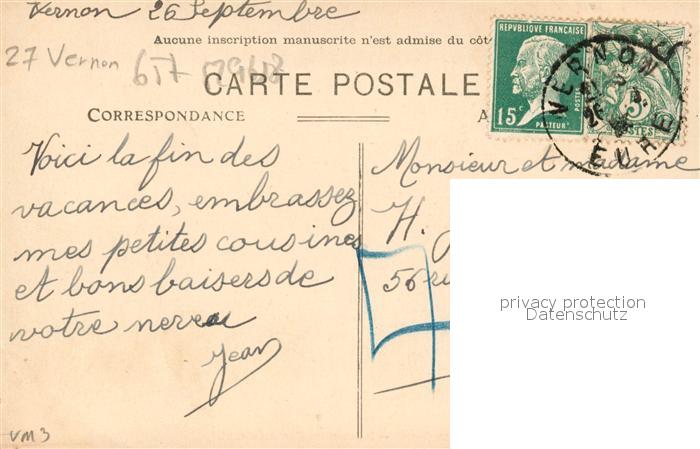 Vernon 26 Septembre
Aucune inscription manuscrite n'est admise du côt
27 Vernon
CARTE POSTALE
CORRESPONDANCE
A
REPUBLIQUE FRANÇAISE
15c
POSTES
PASTEUR
5
POSTES
VERNON
EURE
Voici la fin des
vacances, embrassez
mes petites cousines
et bons baisers de
votre neveu
Jean
Monsieur et madame
H.
56 ru
privacy protection
Datenschutz
VM3